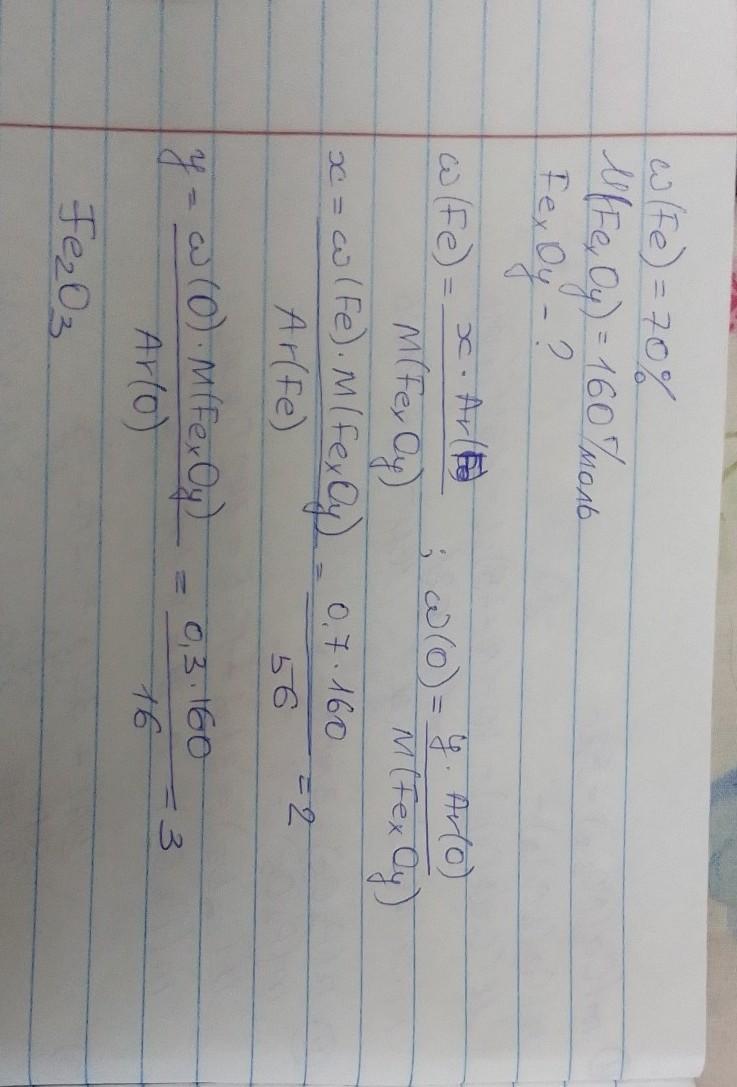 ω(Fe) = 70%
M(FexOy) = 160 г/моль
FexOy - ?
ω(Fe) = x · Ar(Fe) / M(FexOy) ; ω(O) = y · Ar(O) / M(FexOy)
x = ω(Fe) · M(FexOy) / Ar(Fe) = 0,7 · 160 / 56 = 2
y = ω(O) · M(FexOy) / Ar(O) = 0,3 · 160 / 16 = 3
Fe₂O₃